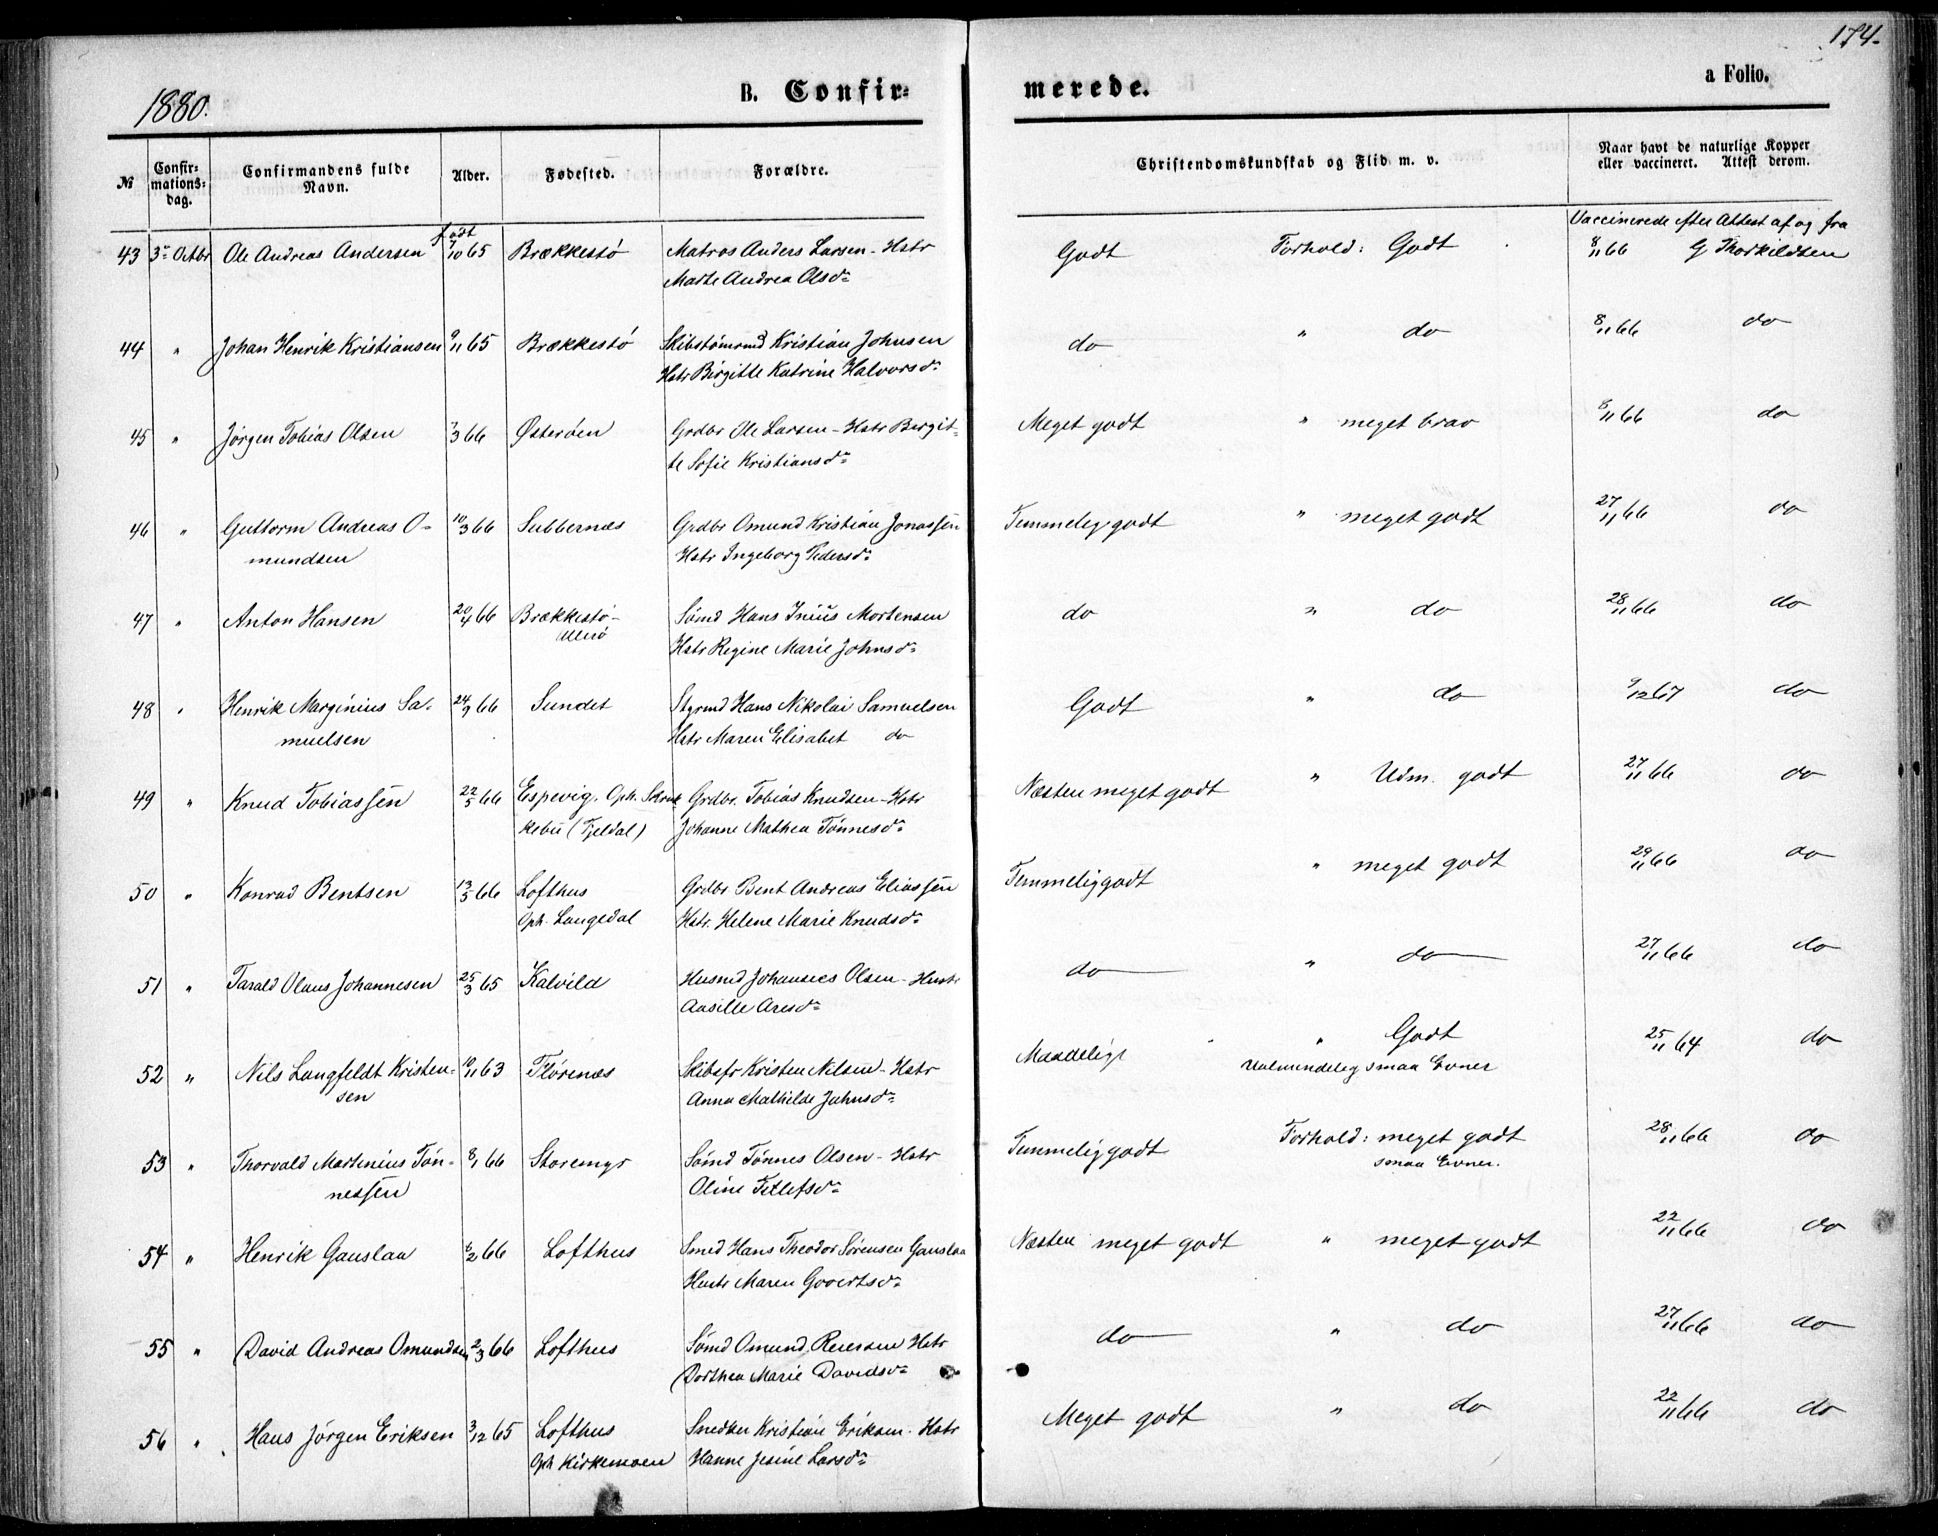 174.
1880.
B. Confir-
merede.
a Folio.
№
Confirmations-
dag.
Confirmandens fulde
Navn.
Alder.
Fødested.
Forældre.
Christendomskundskab og Flid m. v.
Naar havt de naturlige Kopper
eller vaccineret. Attest derom.
født
Vaccinerede efter Attest af og fra
43 3die Octbr Ole Andreas Andersen 7/10 65 Brækkestø Matros Anders Larsen - Hstr Godt Forhold: Godt 8/11 66 G Thorkildsen
Marte Andrea Olsdr
44 " Johan Henrik Kristiansen 9/11 65 Brækkestø Skibstømrmd Kristian Johnsen do " do 8/11 66 do
Hstr Birgitte Katrine Halvorsdr
45 " Jørgen Tobias Olsen 7/3 66 Østerøen Grdbr Ole Larsen - Hstr Bergit- Meget godt " meget brav 8/11 66 do
te Sofie Kristiansdr
46 " Guttorm Andreas O- 10/3 66 Subbernæs Grdbr Omund Kristian Jonassen Temmelig godt " meget godt 27/11 66 do
mundsen Hstr Ingeborg Pedersdr
47 " Anton Hansen 20/4 66 Brækkestø- Sømd Hans Inius Mortensen do " do 28/11 66 do
Hstr Regine Marie Johnsdr
48 " Henrik Marginius Sa- 24/9 66 Sundet Styrmd Hans Nikolai Samuelsen Godt " do 9/12 67 do
muelsen Hstr Maren Elisabet do
49 " Knud Tobiassen 22/5 66 Espevig. Oph. Grdbr. Tobias Knudsen - Hstr Næsten meget godt " Udm. godt 27/11 66 do
kebu (Fjeldal) Johanne Mathea Tønnesdr
50 " Konrad Bentsen 13/5 66 Lofthus Grdbr Bent Andreas Eliassen Temmelig godt " meget godt 29/11 66 do
Oph. Langedal Hstr. Helene Marie Knudsdr
51 " Tarald Olaus Johannesen 25/3 65 Kalvild Husmd Johannes Olsen - Hustr do " do 27/11 66 do
Aasille Aresdr
52 " Nils Langfeldt Kristen- 10/11 63 Flørenæs Skibsfr Kristen Nilsen - Hstr Maadeligt " Godt 25/11 64 do
sen Anna Mathilde Jahnsdr Ualmindelig smaa Evner
53 " Thorvald Martinius Tøn- 8/1 66 Storemyr Sømd Tønnes Olsen - Hstr Temmelig godt Forhold: meget godt 28/11 66 do
nessen Oline Tellefsdr smaa Evner.
54 " Henrik Gauslaa 6/2 66 Lofthus Smed Hans Theodor Sørensen Gauslaa Næsten meget godt " meget godt 22/11 66 do
Hustr Maren Govertsdr
55 " David Andreas Omundsen 2/3 66 Lofthus Sømd Omund Reiersen Hstr do " do 27/11 66 do
Dorthea Marie Davidsdr
56 " Hans Jørgen Eriksen 3/12 65 Lofthus Snedker Kristian Eriksen. Hstr Meget godt " do 22/11 66 do
Oph Kirkemoen Hanne Jesine Larsdr